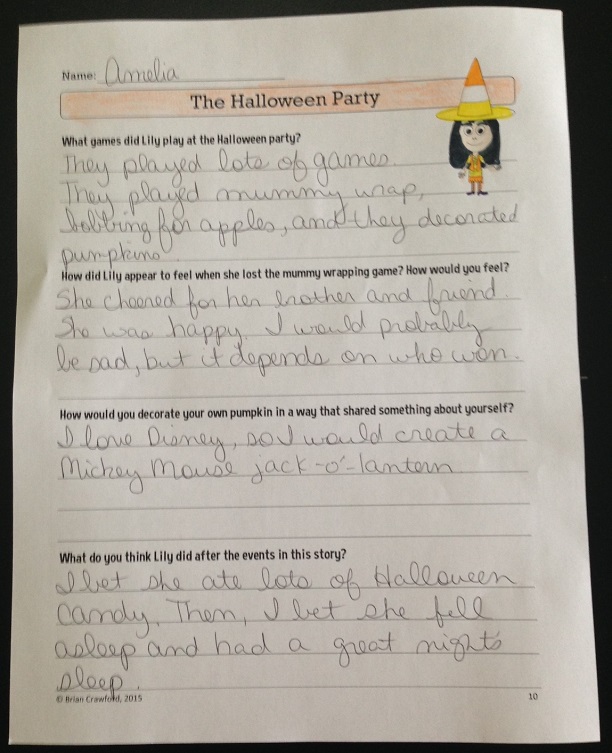 Name: Amelia
The Halloween Party
What games did Lily play at the Halloween party?
They played lots of games.
They played mummy wrap,
bobbing for apples, and they decorated
pumpkins.
How did Lily appear to feel when she lost the mummy wrapping game? How would you feel?
She cheered for her brother and friend.
She was happy. I would probably
be sad, but it depends on who won.
How would you decorate your own pumpkin in a way that shared something about yourself?
I love Disney, so I would create a
Mickey Mouse jack-o'-lantern
What do you think Lily did after the events in this story?
I bet she ate lots of Halloween
Candy. Then, I bet she fell
asleep and had a great night's
sleep.
© Brian Crawford, 2015
10